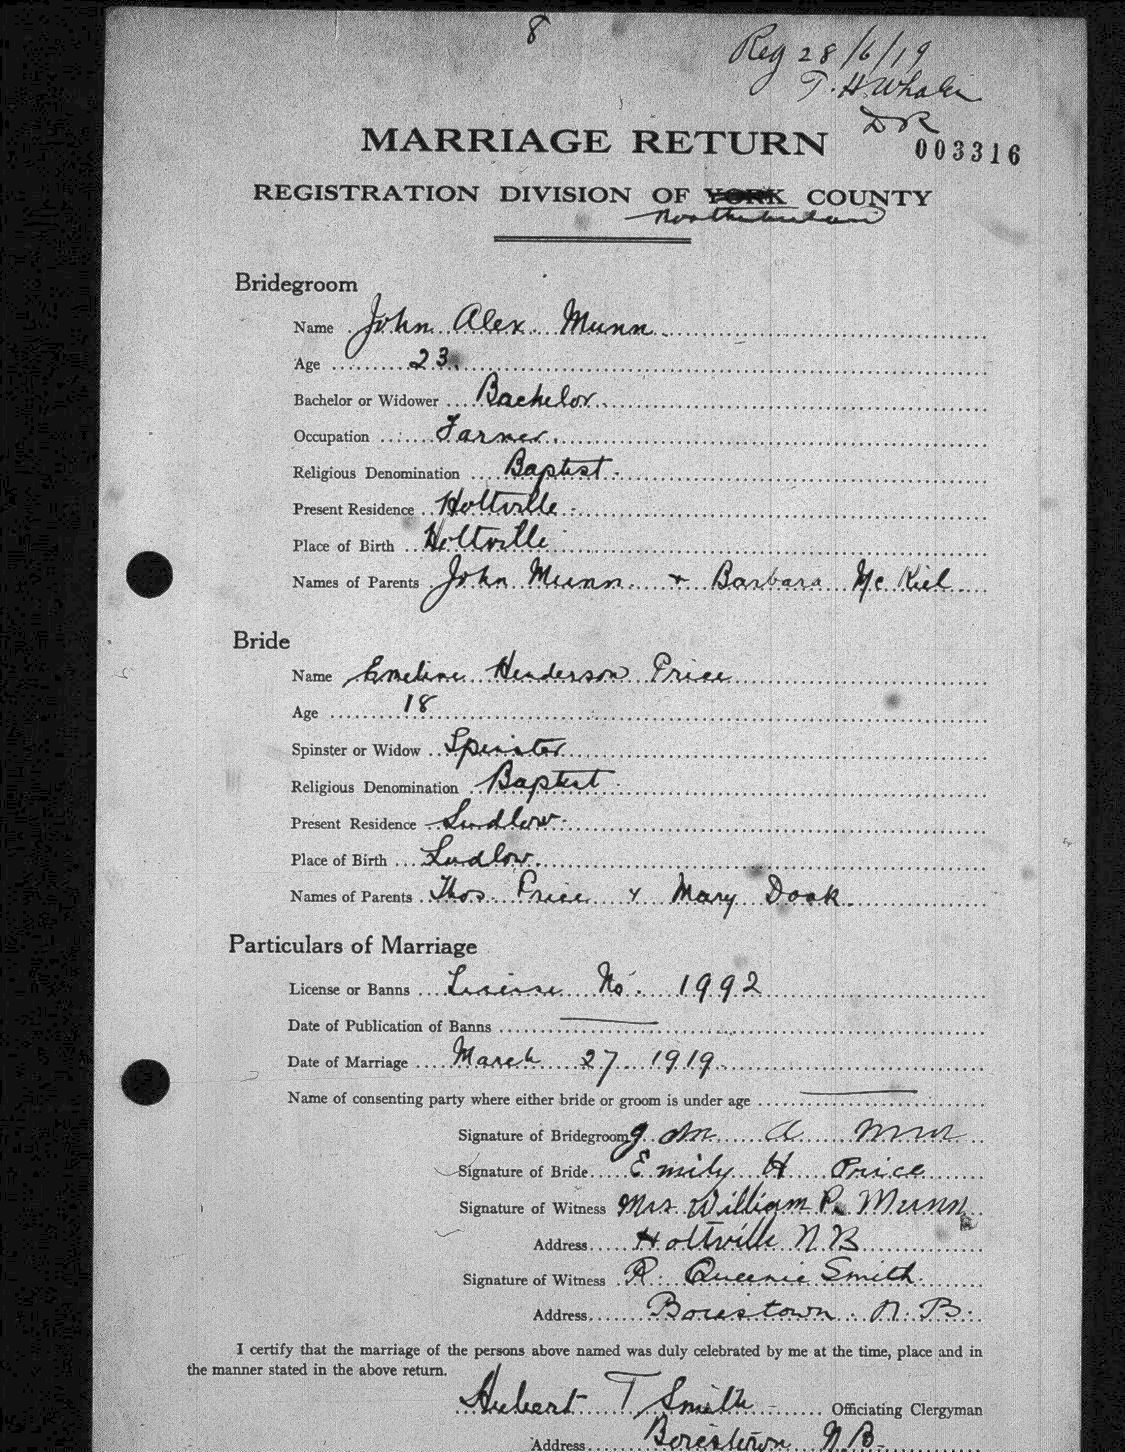 8
Reg 28/6/19
T. H. Whalen
DR
MARRIAGE RETURN
003316
REGISTRATION DIVISION OF YORK COUNTY
Northumberland
Bridegroom
Name John Alex Munn
Age 23
Bachelor or Widower Bachelor
Occupation Farmer
Religious Denomination Baptist
Present Residence Holtville
Place of Birth Holtville
Names of Parents John Munn & Barbara McKiel
Bride
Name Emeline Henderson Price
Age 18
Spinster or Widow Spinster
Religious Denomination Baptist
Present Residence Ludlow
Place of Birth Ludlow
Names of Parents Thos Price & Mary Doak
Particulars of Marriage
License or Banns License No. 1992
Date of Publication of Banns
Date of Marriage March 27 1919
Name of consenting party where either bride or groom is under age
Signature of Bridegroom John A Munn
Signature of Bride Emily H Price
Signature of Witness Mrs William P. Munn
Address Holtville N B
Signature of Witness R. Queenie Smith
Address Boiestown N. B.
I certify that the marriage of the persons above named was duly celebrated by me at the time, place and in
the manner stated in the above return.
Hubert T Smith Officiating Clergyman
Address Boiestown N.B.